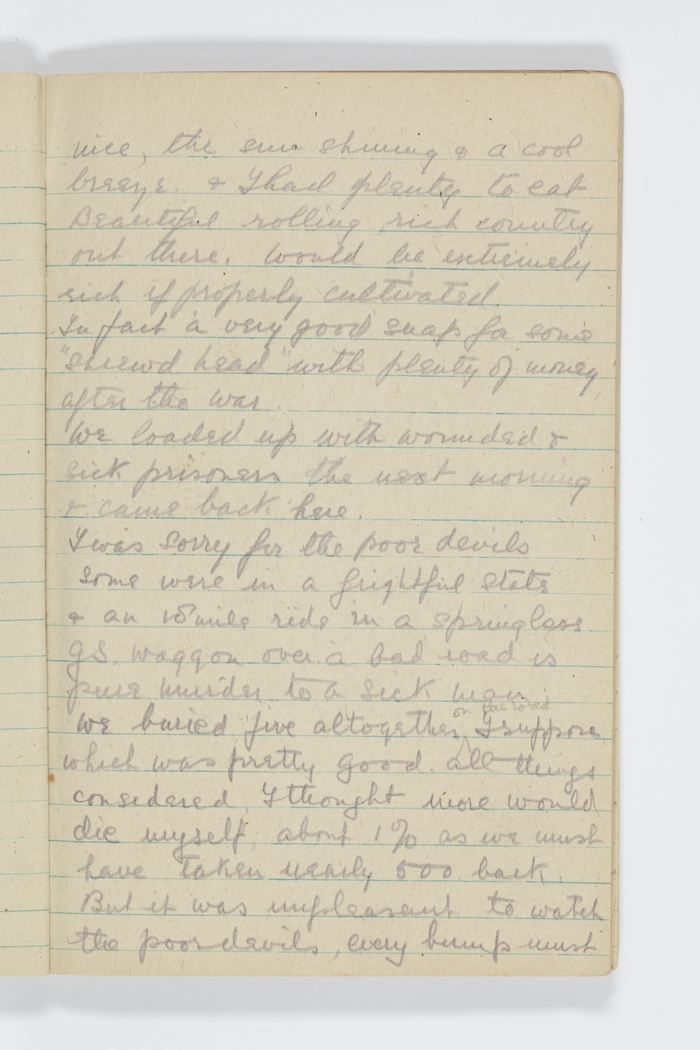 nice, the sun shining & a cool
breeze. & I had plenty to eat
Beautiful rolling, rich country
out there. Would be extremely
rich if properly cultivated.
In fact a very good snap for some
"shrewd head" with plenty of money
after the war.
We loaded up with wounded &
sick prisoners the next morning
& came back here.
I was sorry for the poor devils
some were in a frightful state
& an 18 mile ride in a springless
G.S. waggon over a bad road is
pure murder to a sick man.
on the road
We buried five altogether, I suppose
which was pretty good all things
considered, I thought more would
die myself, about 1% as we must
have taken nearly 500 back.
But it was unpleasant to watch
the poor devils, every bump must